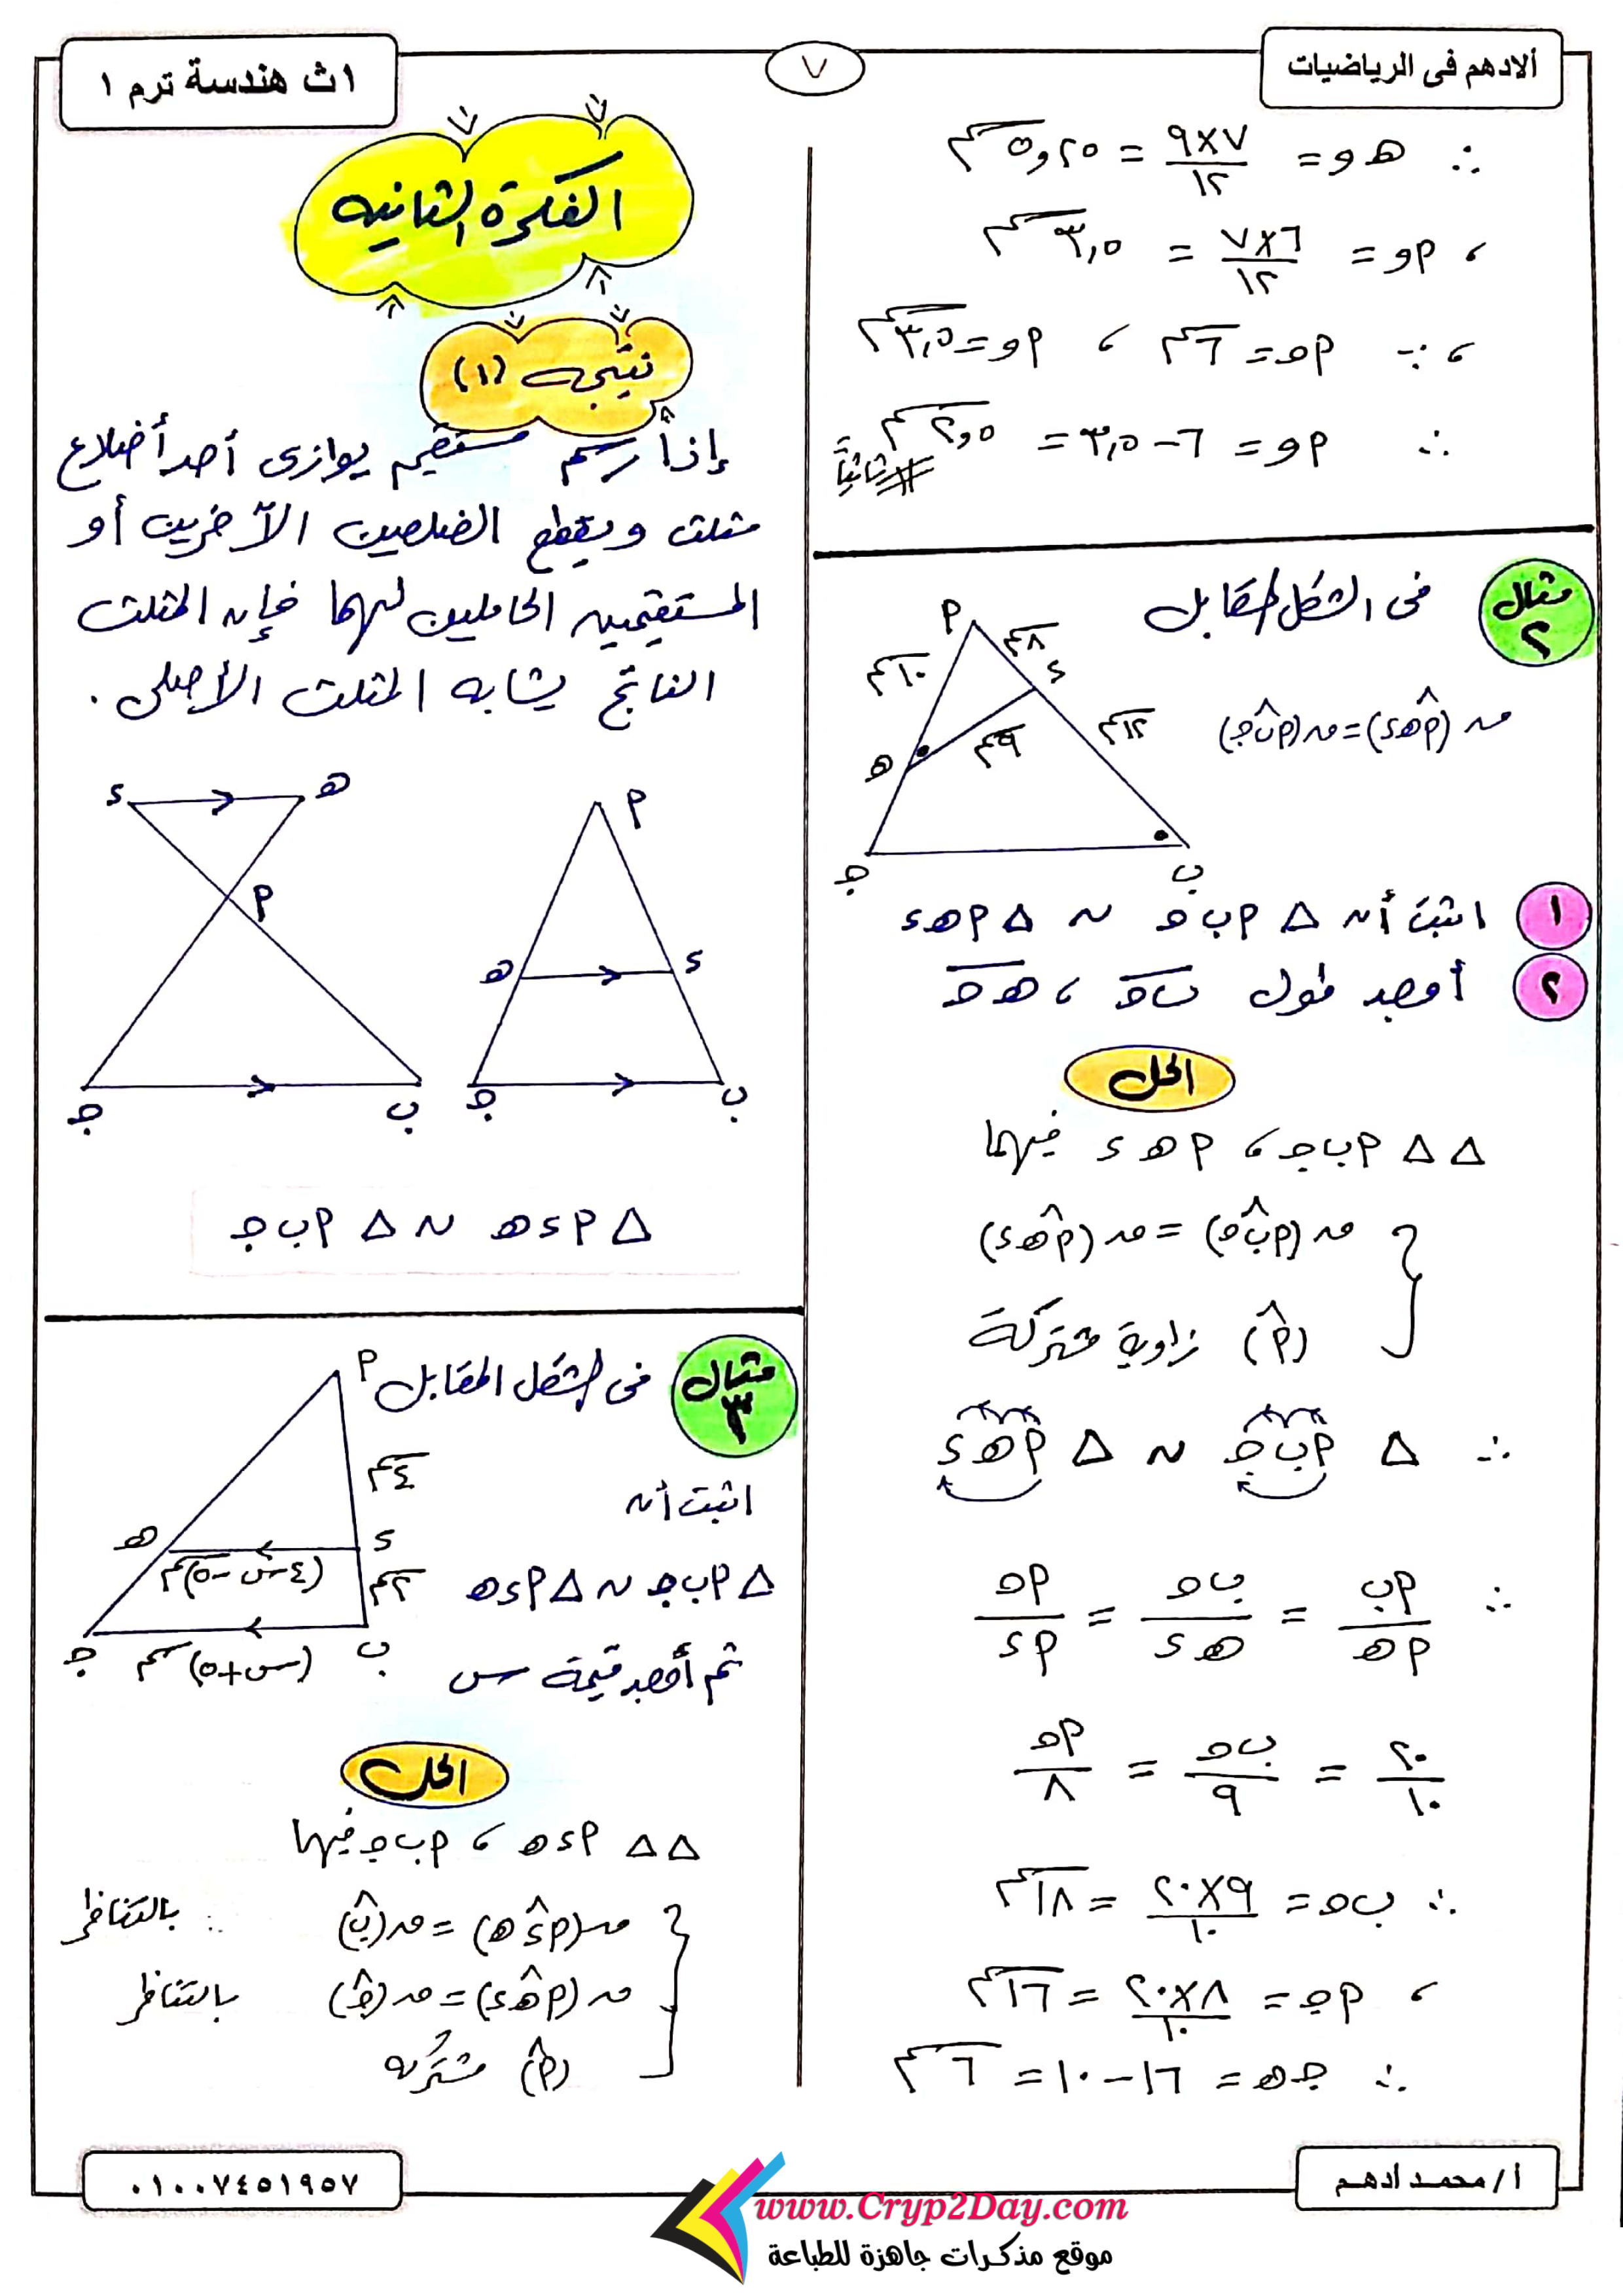 ألادهم فى الرياضيات
٧
١ث هندسة ترم ١
∴ هـ و = ٧×٩/١٢ = ٥,٢٥ سم
، م و = ٦×٧/١٢ = ٣,٥ سم
، ∵ م حـ = ٦ سم ، م و = ٣,٥ سم
∴ م و = ٦ - ٣,٥ = ٢,٥ سم
# ثانياً
مثال ٢
فى الشكل المقابل
م
٨ سم
١٠ سم
ء
١٢ سم
٩ سم
هـ
جـ
ب
ق (م هـ ء) = ق (م ب جـ)
١ اثبت أن Δ م ب جـ ~ Δ م هـ ء
٢ أوجد طول ب جـ ، هـ جـ
الحل
Δ Δ م ب جـ ، م هـ ء فيهما
ق (م ب جـ) = ق (م هـ ء)
(م) زاوية مشتركة
∴ Δ م ب جـ ~ Δ م هـ ء
∴ م ب/م هـ = ب جـ/هـ ء = م جـ/م ء
٢٠/١٠ = ب جـ/٩ = م جـ/٨
∴ ب جـ = ٩×٢٠/١٠ = ١٨ سم
، م جـ = ٨×٢٠/١٠ = ١٦ سم
∴ جـ هـ = ١٦ - ١٠ = ٦ سم
الفكرة الثانيه
نتيجه (١)
إذا رسم مستقيم يوازى أحد أضلاع
مثلث ويقطع الضلعين الآخرين أو
المستقيمين الحاملين لهما فإن المثلث
الناتج يشابه المثلث الأصلى .
ء هـ
م
جـ ب
م
هـ ء
جـ ب
Δ م ء هـ ~ Δ م ب جـ
مثال ٣
فى الشكل المقابل
م
٤ سم
هـ ء
(٤س-٥) سم
٢ سم
جـ ب
(س+٥) سم
اثبت أن
Δ م ب جـ ~ Δ م ء هـ
ثم أوجد قيمة س
الحل
Δ Δ م ء هـ ، م ب جـ فيهما
ق (م ء هـ) = ق (ب) ∴ بالتناظر
ق (م هـ ء) = ق (جـ) بالتناظر
(م) مشتركه
أ/ محمد أدهم
٠١٠٠٧٤٥١٩٥٧
www.Cryp2Day.com
موقع مذكرات جاهزة للطباعة